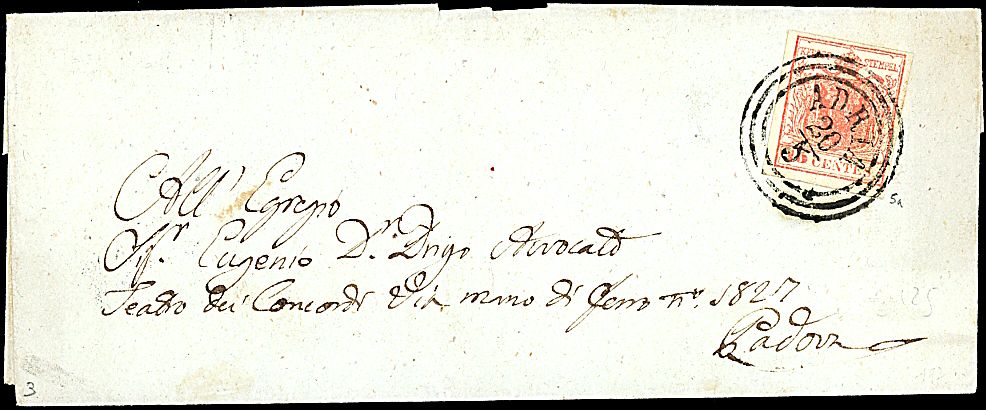 STEMPEL
ADRIA
20
5 CENTES
5a
All' Egregio
Sigr. Eugenio Dr. Drigo Avvocato
Teatro dei Concordi Via mano di ferro no. 1827
Padova
3